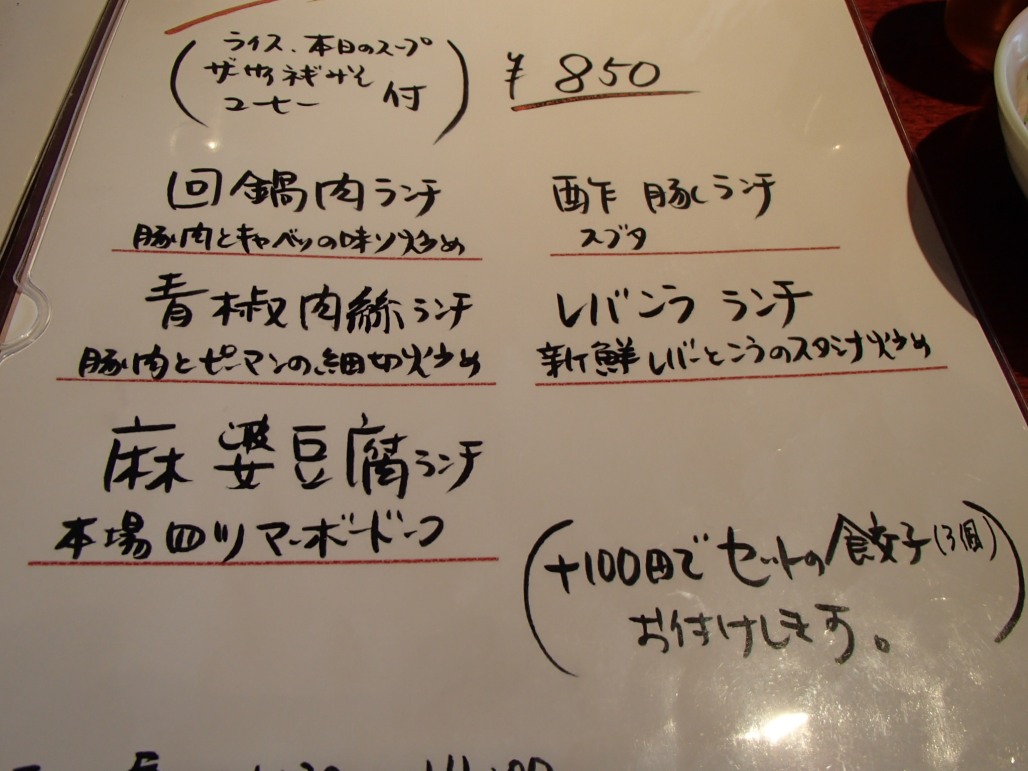 ライス、本日のスープ
ザーサイ ネギみそ
コーヒー 付
¥850
回鍋肉ランチ
豚肉とキャベツの味ソ炒め
酢豚ランチ
スブタ
青椒肉絲ランチ
豚肉とピーマンの細切炒め
レバニラ ランチ
新鮮レバーとニラのスタミナ炒め
麻婆豆腐ランチ
本場四川マーボードーフ
(+100円でセットの餃子(3個)
お付けします。)